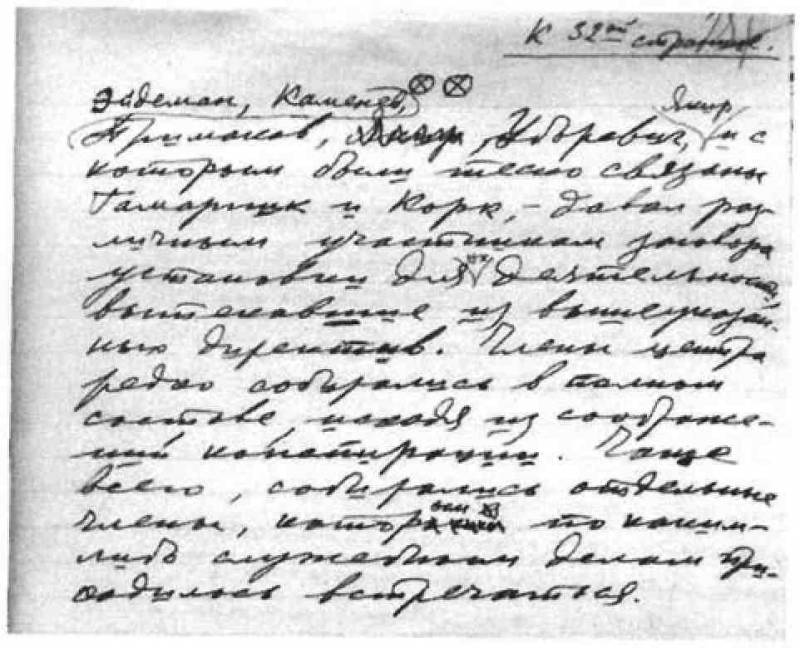 К 32ой странице.
Эйдеман, Каменев, ⊗ ⊗
Якир,
Примаков, Якир, Убъревич, и с
которым были тесно связаны
Гамарник и Корк, – давал раз-
личным участникам заговора
установки для их деятельности,
вытекавшие из вышеуказан-
ных директив. Члены центра
редко собирались в полном
составе, исходя из соображе-
ний конспирации. Чаще
всего, собирались отдельные
члены, которым по каким-
либо служебным делам при-
ходилось встречаться.